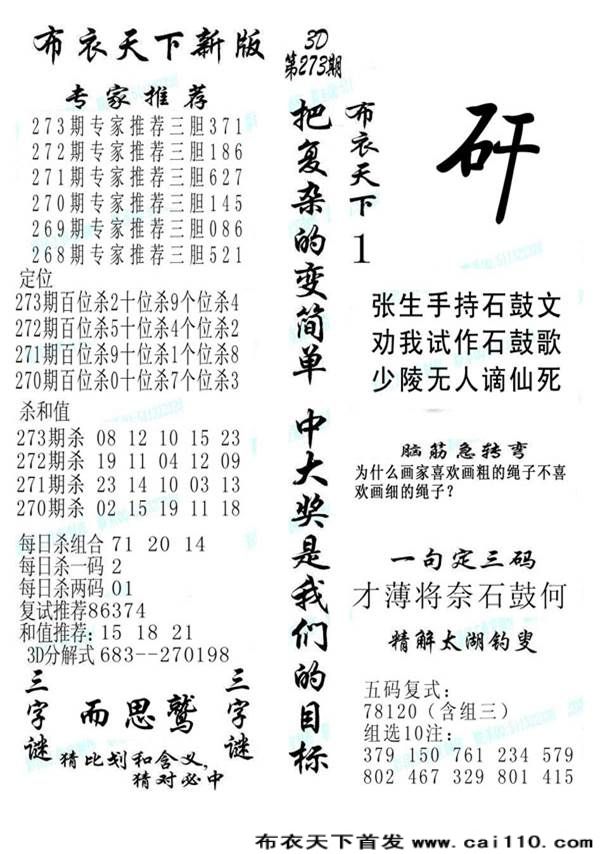 布衣天下新版
3D
第273期
专家推荐
273期专家推荐三胆371
272期专家推荐三胆186
271期专家推荐三胆627
270期专家推荐三胆145
269期专家推荐三胆086
268期专家推荐三胆521
定位
273期百位杀2十位杀9个位杀4
272期百位杀5十位杀4个位杀2
271期百位杀9十位杀1个位杀8
270期百位杀0十位杀7个位杀3
杀和值
273期杀 08 12 10 15 23
272期杀 19 11 04 12 09
271期杀 23 14 10 03 13
270期杀 02 15 19 11 18
每日杀组合 71 20 14
每日杀一码 2
每日杀两码 01
复试推荐86374
和值推荐:15 18 21
3D分解式 683--270198
三字谜
而思鹫
三字谜
猜比划和含义,
猜对必中
把复杂的变简单 中大奖是我们的目标
布衣天下1
矸
张生手持石鼓文
劝我试作石鼓歌
少陵无人谪仙死
脑筋急转弯
为什么画家喜欢画粗的绳子不喜
欢画细的绳子?
一句定三码
才薄将奈石鼓何
精解太湖钓叟
五码复式:
78120(含组三)
组选10注:
379 150 761 234 579
802 467 329 801 415
布衣天下首发 www.cai110.com